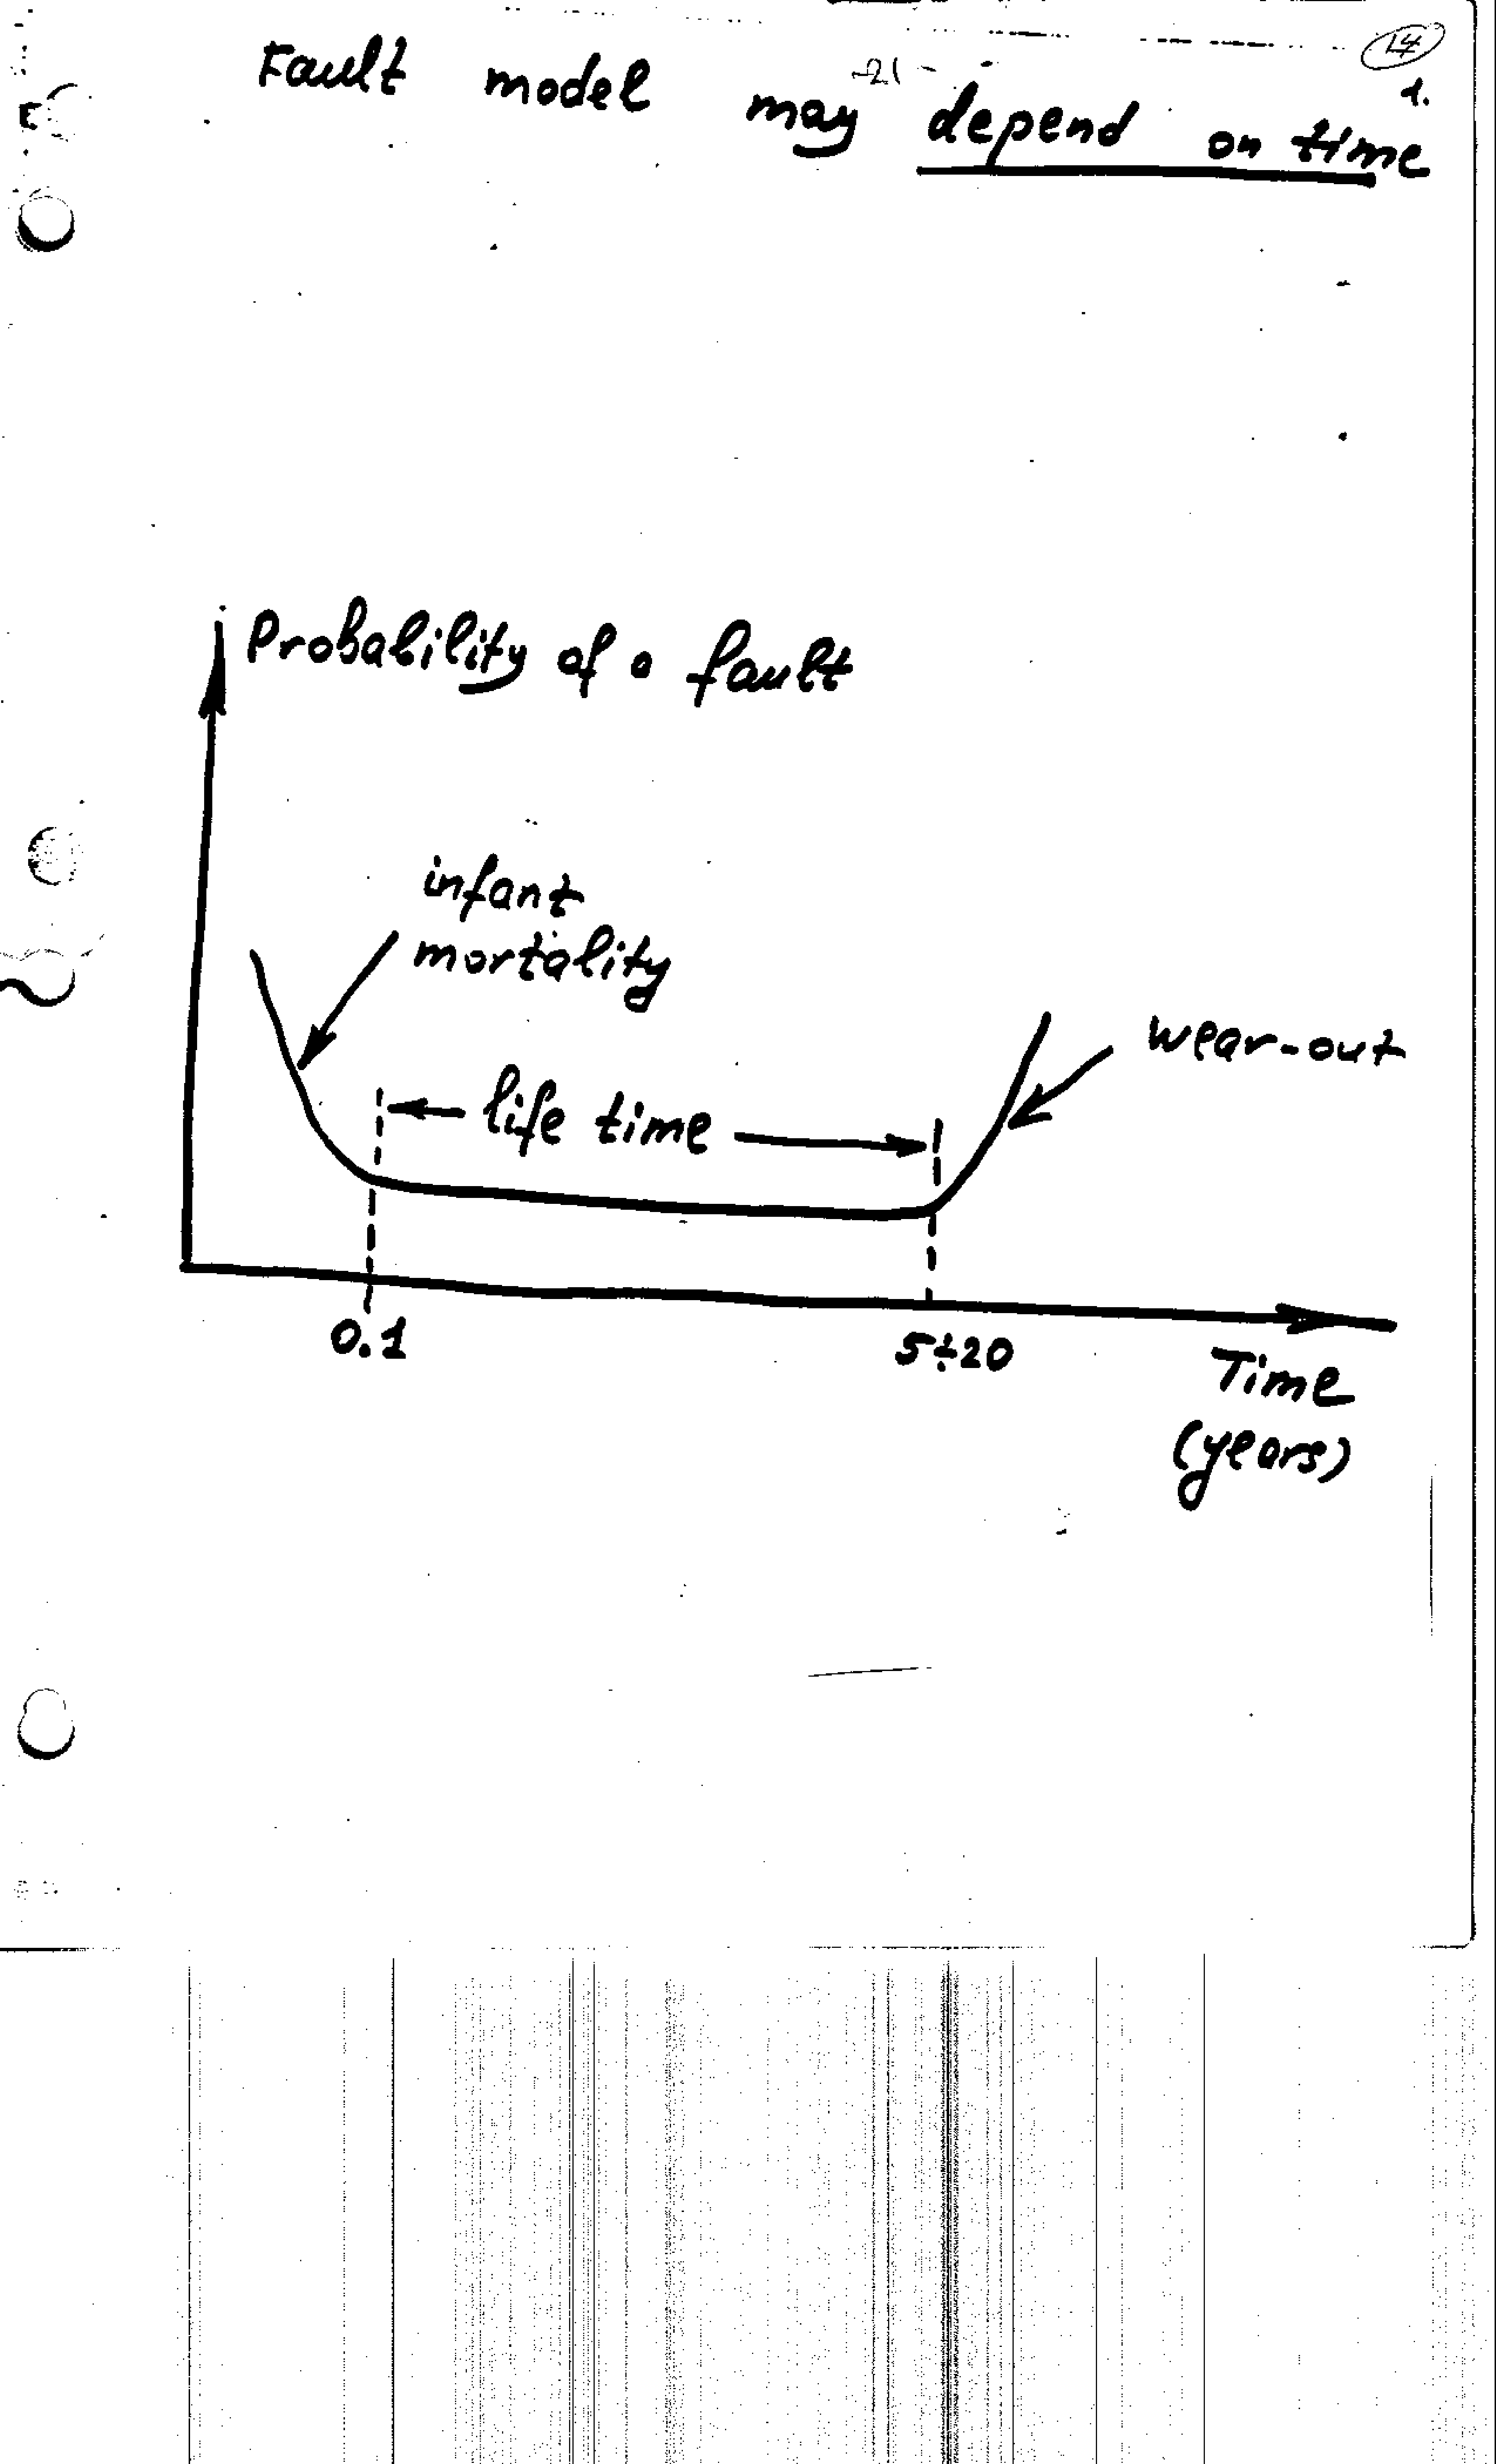 14
-21-
1.
Fault model may depend on time
Probability of a fault
infant
mortality
life time
wear-out
0.1
5÷20
Time
(years)